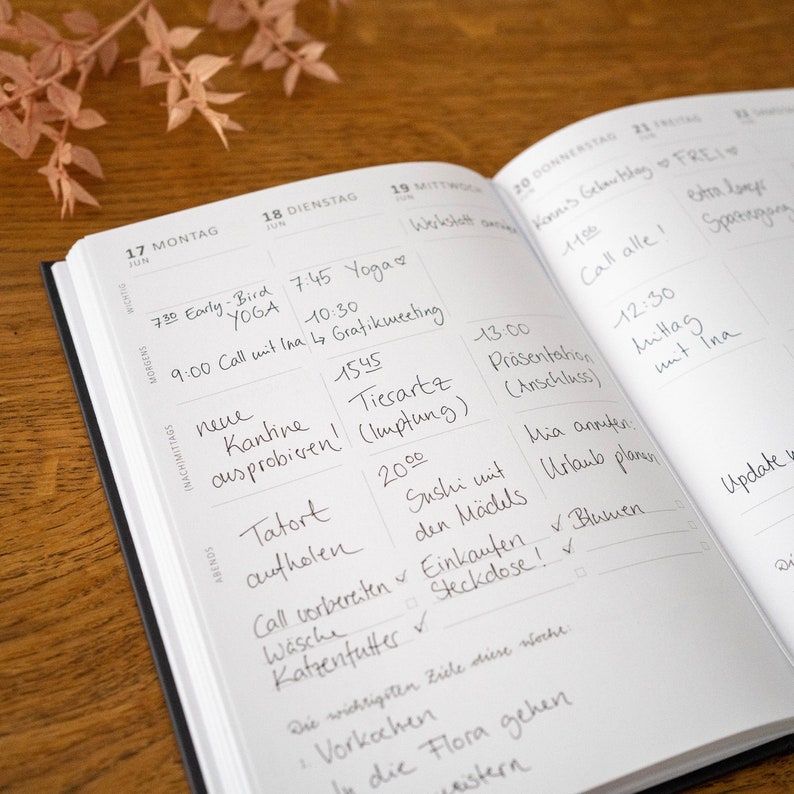 17 MONTAG
JUN
WICHTIG
7³⁰ Early-Bird
YOGA
MORGENS
9:00 Call mit Ina
(NACH)MITTAGS
neue
Kantine
ausprobieren!
ABENDS
Tatort
aufholen
Call vorbereiten ✓
Wäsche
Katzenfutter ✓
18 DIENSTAG
JUN
7:45 Yoga♡
10:30
↳ Grafikmeeting
15⁴⁵
Tierartz
(Impfung)
20⁰⁰
Sushi mit
den Mädels
Einkaufen ✓
Steckdose! ✓
19 MITTWOCH
JUN
Werkstatt
13:00
Präsentation
(Anschluss)
Mia anrufen:
Urlaub planen
Blumen
Die wichtigsten Ziele diese Woche:
1. Vorkochen
In die Flora gehen
meistern
20 DONNERSTAG
JUN
Geburtstag ♡
11⁰⁰
Call alle!
12:30
Mittag
mit Ina
Update
21 FREITAG
JUN
FREI ♡
extra langer
Spaziergang
22